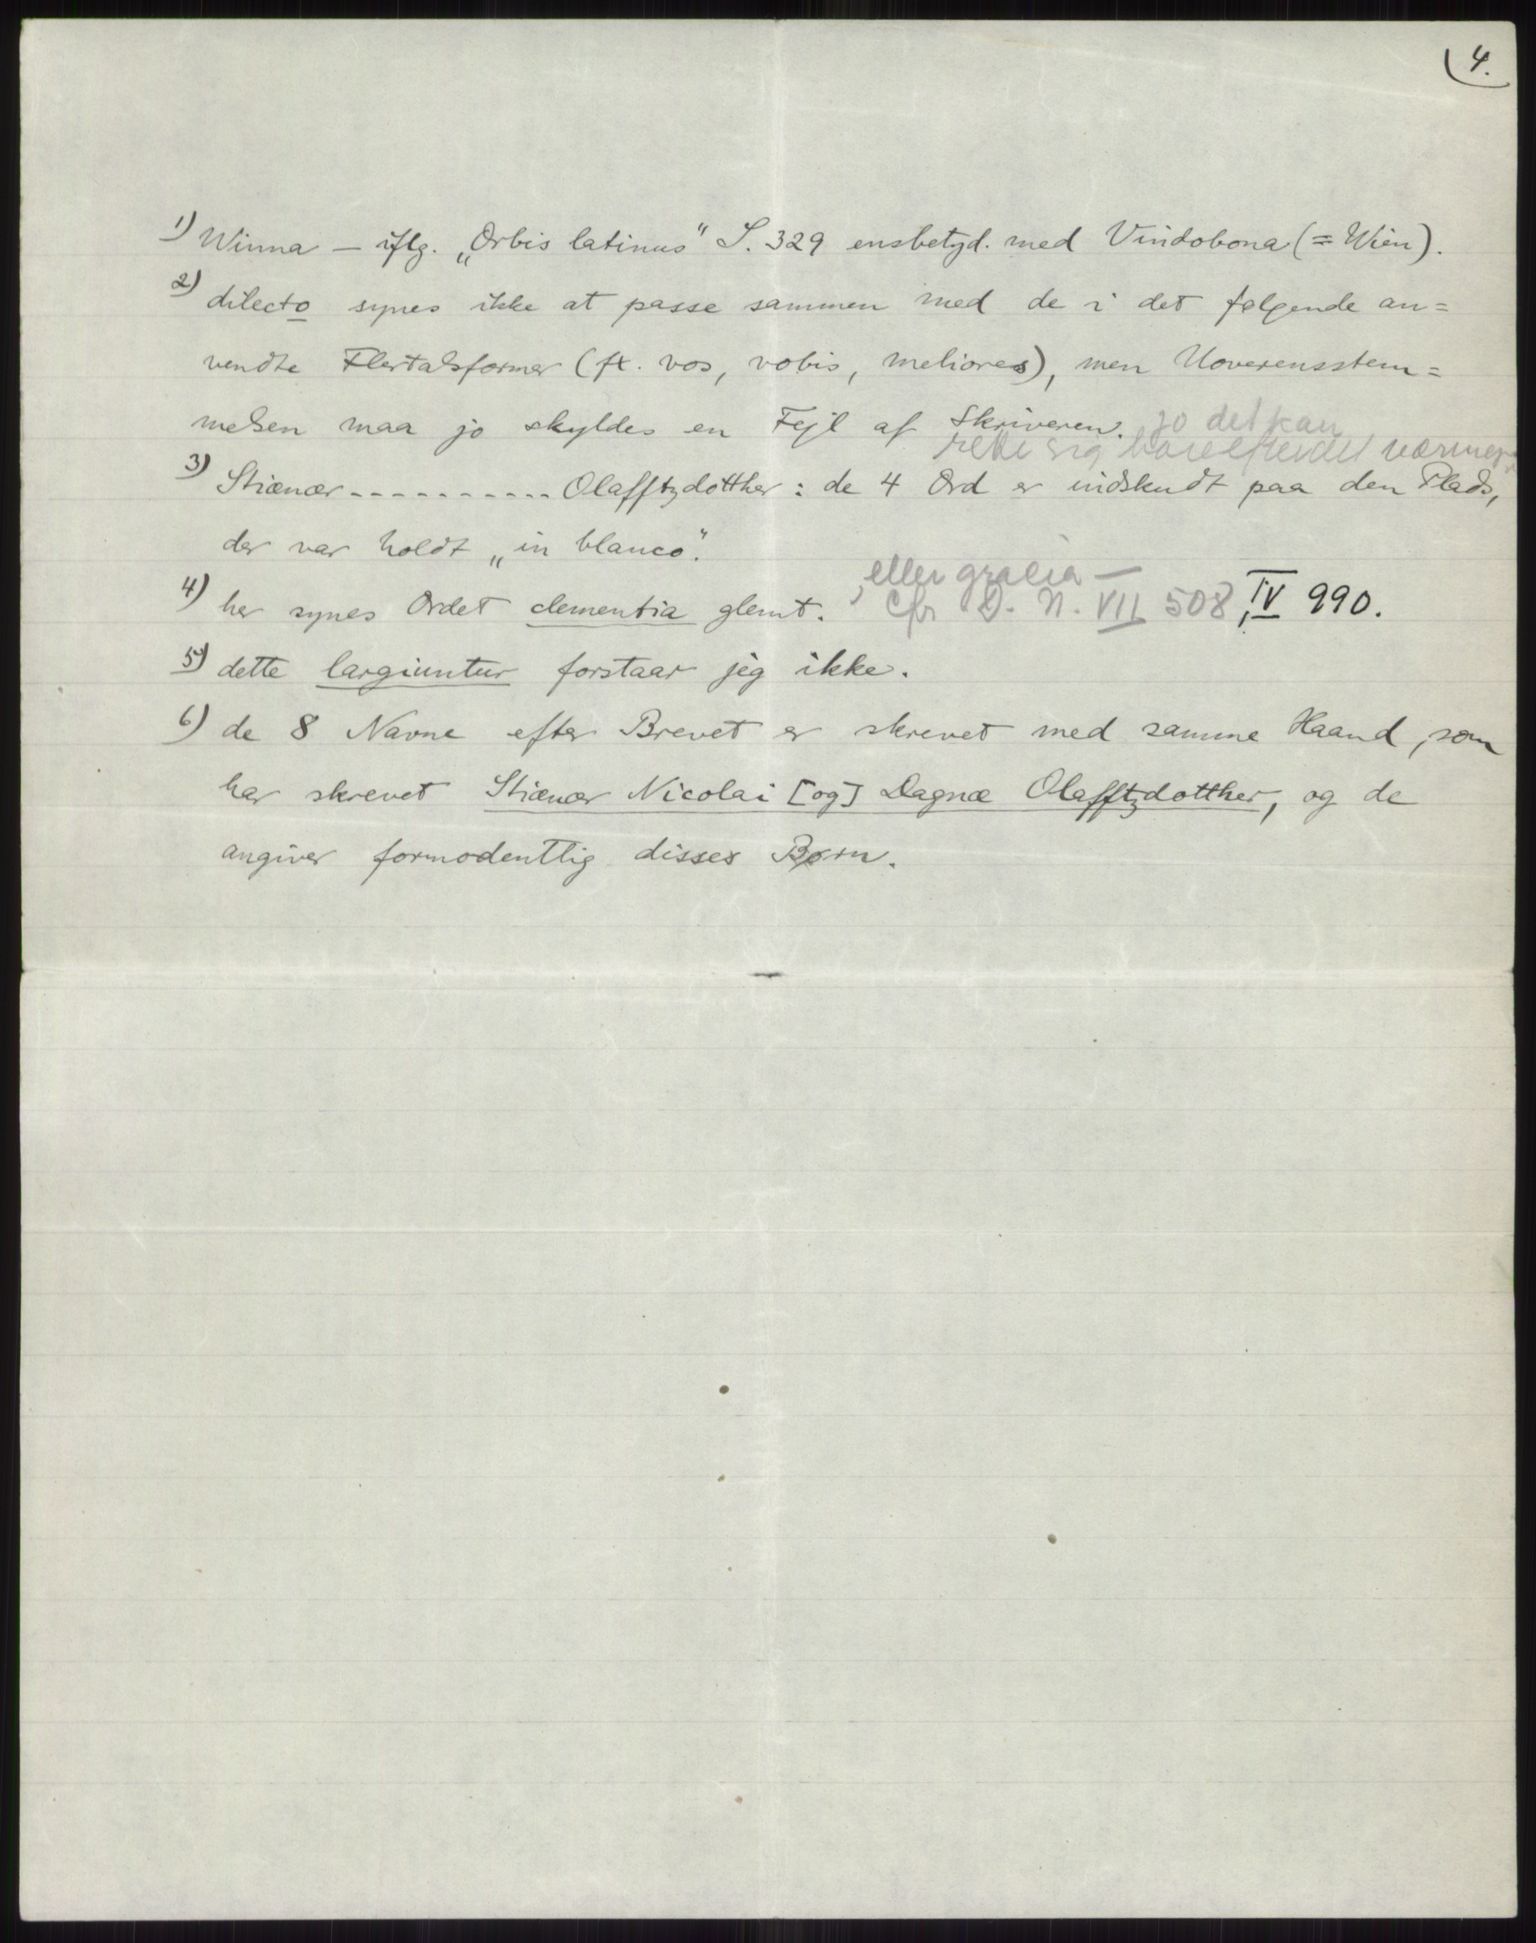 4.
1) Winna — iflg. „Orbis latinus" S. 329 ensbetyd. med Vindobona (= Wien).
2) dilecto synes ikke at passe sammen med de i det følgende an=
vendte Flertalsformer (fx. vos, vobis, meliores), men Uoverensstem=
melsen maa jo skyldes en Fejl af Skriveren. jo det kan
rette sig
3) Stiænær - - - - - - - - - - Olafftzdotther: de 4 Ord er indskudt paa den Plads,
der var holdt „in blanco".
eller gracia —
4) her synes Ordet clementia glemt. cfr D. N. VII 508, IV 990.
5) dette largiuntur forstaar jeg ikke.
6) de 8 Navne efter Brevet er skrevet med samme Haand, som
har skrevet Stiænær Nicolai [og] Dagnæ Olafftzdotther, og de
angiver formodentlig disses Børn.